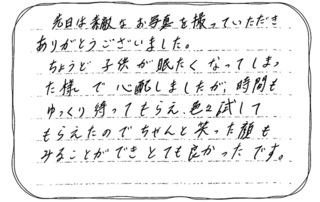 先日は素敵なお写真を撮っていただき
ありがとうございました。
ちょうど子供が眠たくなってしまっ
た様で心配しましたが、時間も
ゆっくり待ってもらえ、色々試して
もらえたのでちゃんと笑った顔も
みることができとても良かったです。